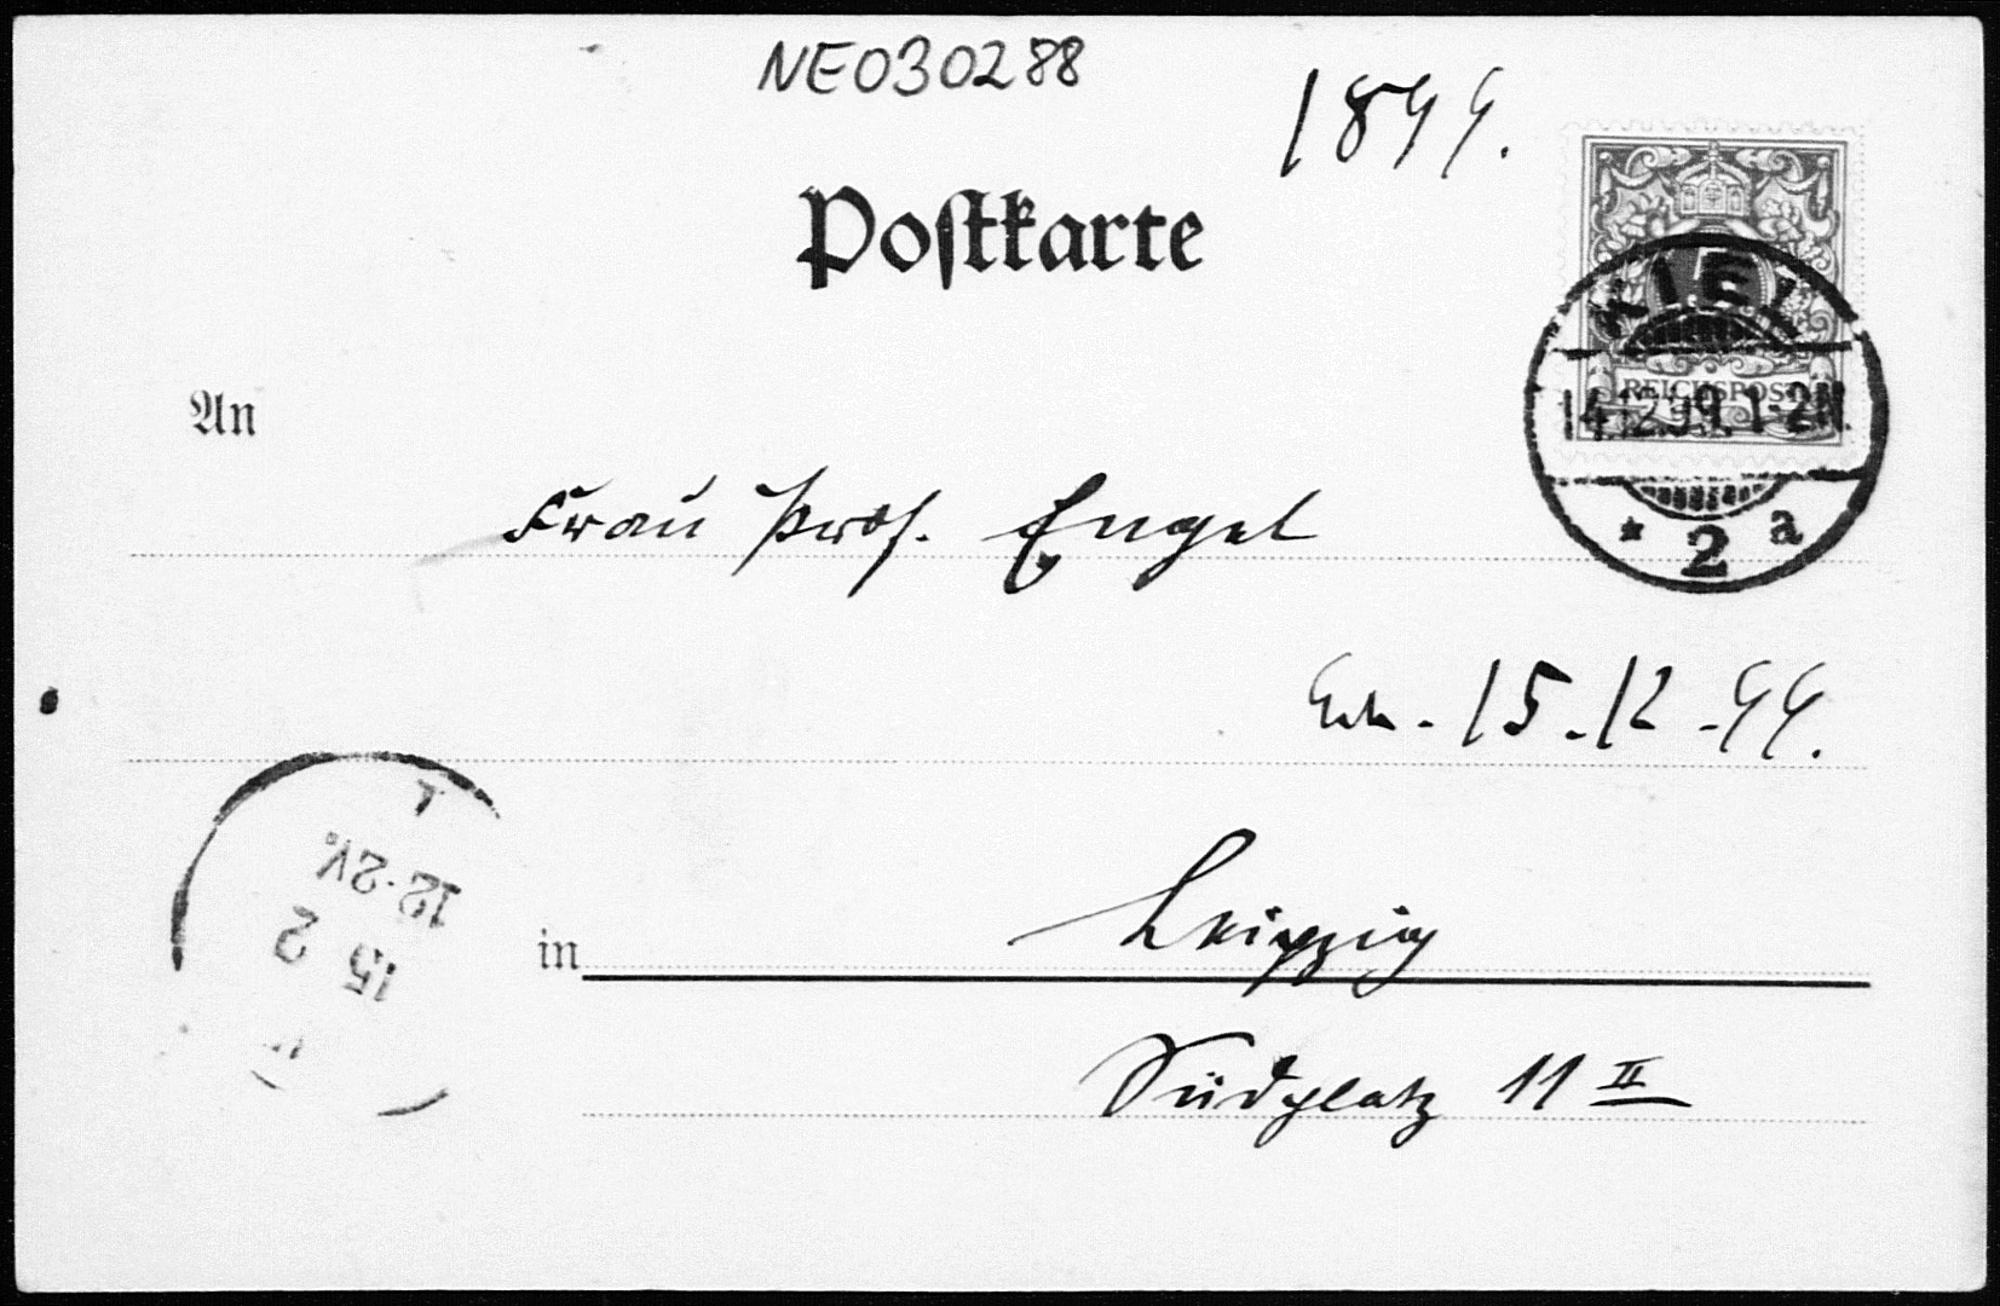 NE030288
1899.
Postkarte
KIEL
5
REICHSPOST
14.12.99.1-2N.
* 2 a
An
Frau Prof. Engel
Erh. 15.12.99.
12-2V.
15 2
in Leipzig
Südplatz 11 II